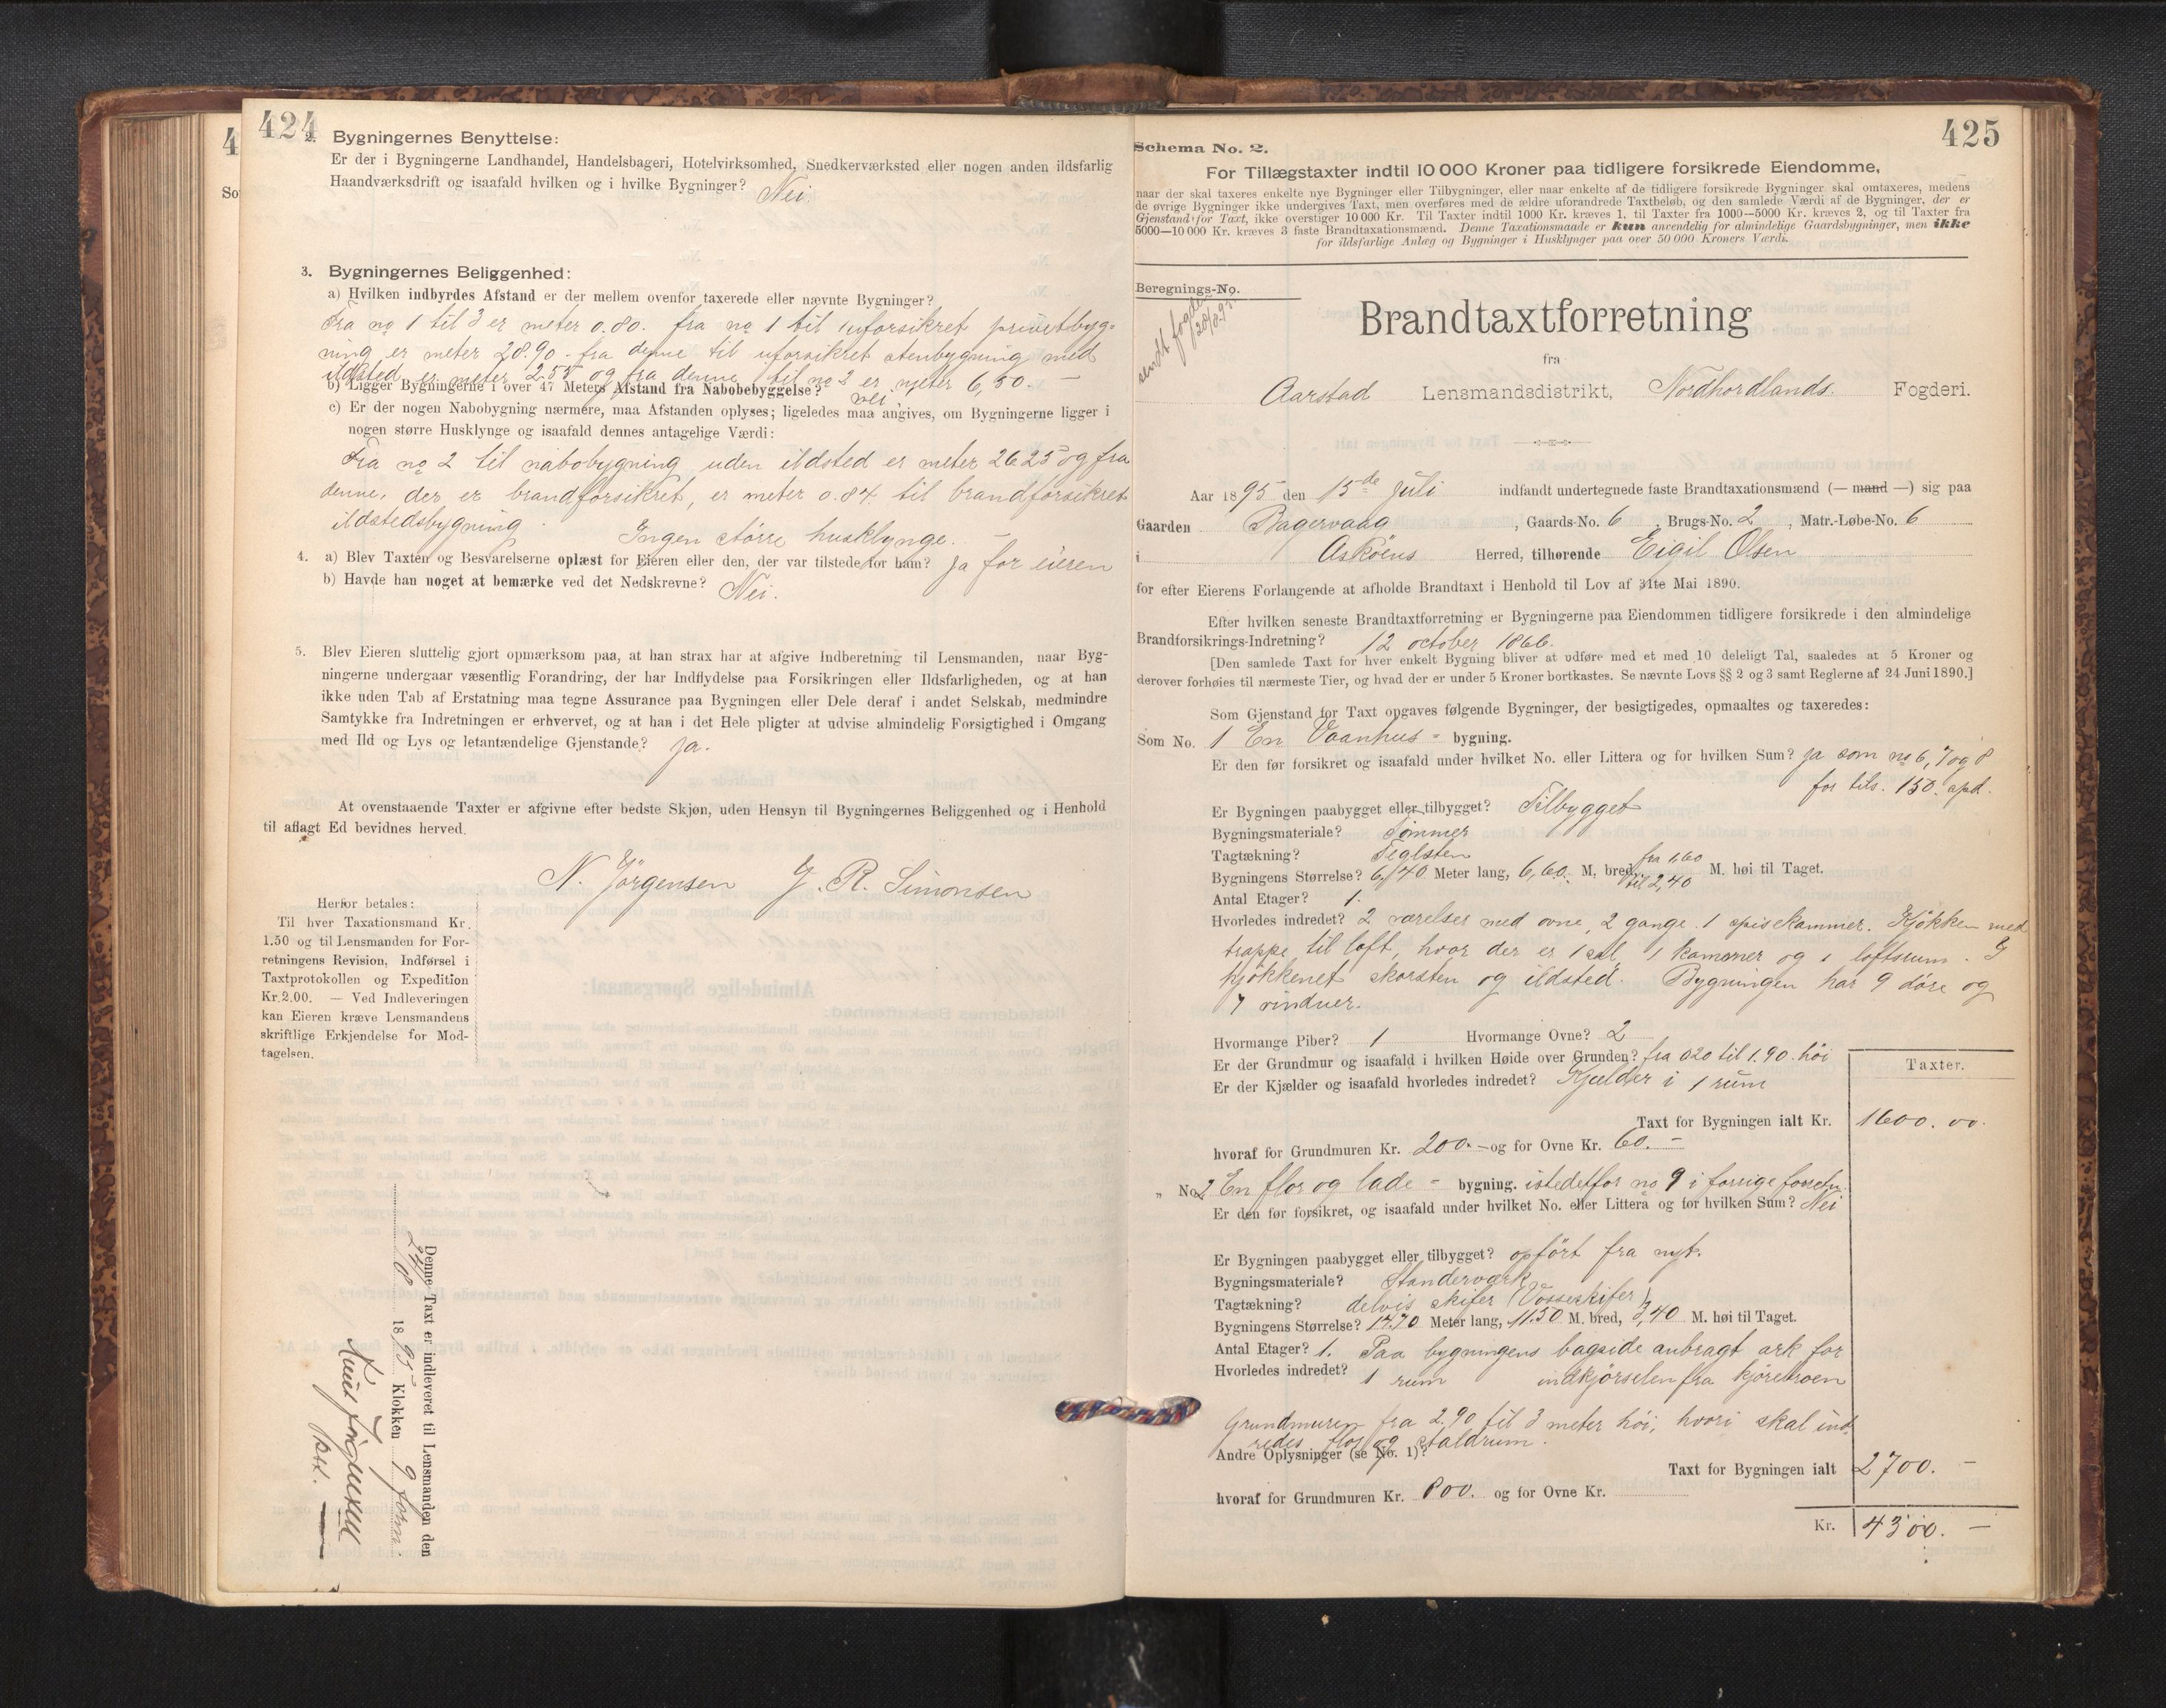 424
2. Bygningernes Benyttelse:
Er der i Bygningerne Landhandel, Handelsbageri, Hotelvirksomhed, Snedkerværksted eller nogen anden ildsfarlig
Haandværksdrift og isaafald hvilken og i hvilke Bygninger? Nei.
3. Bygningernes Beliggenhed:
a) Hvilken indbyrdes Afstand er der mellem ovenfor taxerede eller nævnte Bygninger?
Fra no 1 til 3 er meter 0.80. fra no 1 til uforsikret privetbyg-
ning er meter 28.90 - fra denne til uforsikret stenbygning med
ildsted er meter 2.55 og fra denne til no 2 er meter 6,50. —
b) Ligger Bygningerne i over 47 Meters Afstand fra Nabobebyggelse? nei
c) Er der nogen Nabobygning nærmere, maa Afstanden oplyses; ligeledes maa angives, om Bygningerne ligger i
nogen større Husklynge og isaafald dennes antagelige Værdi:
Fra no 2 til nabobygning uden ildsted er meter 26.25 og fra
denne, der er brandforsikret, er meter 0.84 til brandforsikret
ildstedsbygning. Ingen större husklynge. —
4. a) Blev Taxten og Besvarelserne oplæst for Eieren eller den, der var tilstede for ham? Ja for eieren
b) Havde han noget at bemærke ved det Nedskrevne? Nei.
5. Blev Eieren sluttelig gjort opmærksom paa, at han strax har at afgive Indberetning til Lensmanden, naar Byg-
ningerne undergaar væsentlig Forandring, der har Indflydelse paa Forsikringen eller Ildsfarligheden, og at han
ikke uden Tab af Erstatning maa tegne Assurance paa Bygningen eller Dele deraf i andet Selskab, medmindre
Samtykke fra Indretningen er erhvervet, og at han i det Hele pligter at udvise almindelig Forsigtighed i Omgang
med Ild og Lys og letantændelige Gjenstande? Ja.
At ovenstaaende Taxter er afgivne efter bedste Skjøn, uden Hensyn til Bygningernes Beliggenhed og i Henhold
til aflagt Ed bevidnes herved.
N. Jörgensen J. R. Simonsen
Herfor betales:
Til hver Taxationsmand Kr.
1.50 og til Lensmanden for For-
retningens Revision, Indførsel i
Taxtprotokollen og Expedition
Kr. 2.00. — Ved Indleveringen
kan Eieren kræve Lensmandens
skriftlige Erkjendelse for Mod-
tagelsen.
Denne Taxt er indleveret til Lensmanden den
24/8 1895 Klokken 9 form.
425
Schema No. 2.
For Tillægstaxter indtil 10 000 Kroner paa tidligere forsikrede Eiendomme,
naar der skal taxeres enkelte nye Bygninger eller Tilbygninger, eller naar enkelte af de tidligere forsikrede Bygninger skal omtaxeres, medens
de øvrige Bygninger ikke undergives Taxt, men overføres med de ældre uforandrede Taxtbeløb, og den samlede Værdi af de Bygninger, der er
Gjenstand for Taxt, ikke overstiger 10 000 Kr. Til Taxter indtil 1000 Kr. kræves 1, til Taxter fra 1000—5000 Kr. kræves 2, og til Taxter fra
5000—10 000 Kr. kræves 3 faste Brandtaxationsmænd. Denne Taxationsmaade er kun anvendelig for almindelige Gaardsbygninger, men ikke
for ildsfarlige Anlæg og Bygninger i Husklynger paa over 50 000 Kroners Værdi.
Beregnings-No.
sendt fogden
Brandtaxtforretning
fra
Aarstad Lensmandsdistrikt, Nordhordlands. Fogderi.
Aar 1895 den 15de Juli indfandt undertegnede faste Brandtaxationsmænd (— mand —) sig paa
Gaarden Bagervaag, Gaards-No. 6, Brugs-No. 2, Matr.-Løbe-No. 6
i Asköens Herred, tilhørende Eigil Olsen
for efter Eierens Forlangende at afholde Brandtaxt i Henhold til Lov af 31te Mai 1890.
Efter hvilken seneste Brandtaxtforretning er Bygningerne paa Eiendommen tidligere forsikrede i den almindelige
Brandforsikrings-Indretning? 12 october 1866.
[Den samlede Taxt for hver enkelt Bygning bliver at udføre med et med 10 deleligt Tal, saaledes at 5 Kroner og
derover forhøies til nærmeste Tier, og hvad der er under 5 Kroner bortkastes. Se nævnte Lovs §§ 2 og 3 samt Reglerne af 24 Juni 1890.]
Som Gjenstand for Taxt opgaves følgende Bygninger, der besigtigedes, opmaaltes og taxeredes:
Som No. 1 En Vaanhus - bygning.
Er den før forsikret og isaafald under hvilket No. eller Littera og for hvilken Sum? Ja som no 6, 7 og 8
for tils. 150. spd.
Er Bygningen paabygget eller tilbygget? Tilbygget
Bygningsmateriale? Tömmer
Tagtækning? Teglsten
Bygningens Størrelse? 6,40 Meter lang, 6,60. M. bred, fra 1,60 til 2,40 M. høi til Taget.
Antal Etager? 1.
Hvorledes indredet? 2 værelser med ovne, 2 gange. 1 spisekammer. Kjökken med
trappe til loft, hvor der er 1 sal, 1 kammer og 1 loftsrum. I
kjökkenet skorsten og ildsted. Bygningen har 9 döre og
7 vinduer.
Hvormange Piber? 1 Hvormange Ovne? 2
Er der Grundmur og isaafald i hvilken Høide over Grunden? fra 0.20 til 1.90. höi
Er der Kjælder og isaafald hvorledes indredet? Kjælder i 1 rum
Taxter.
Taxt for Bygningen ialt Kr. 1600. 00.
hvoraf for Grundmuren Kr. 200.- og for Ovne Kr. 60. -
" No. 2 En flor og lade - bygning. istedetfor no 9 i forrige forretn.
Er den før forsikret, og isaafald under hvilket No. eller Littera og for hvilken Sum? Nei
Er Bygningen paabygget eller tilbygget? opfört fra nyt.
Bygningsmateriale? Standerværk
Tagtækning? delvis skifer (Vosseskifer)
Bygningens Størrelse? 14.70 Meter lang, 11.50 M. bred, 3,40 M. høi til Taget.
Antal Etager? 1. Paa bygningens bagside anbragt ark for
Hvorledes indredet? 1 rum indkjörselen fra kjörebroen
Grundmuren fra 2.90 til 3 meter höi, hvori skal ind-
redes flor og staldrum.
Andre Oplysninger (se No. 1)?
Taxt for Bygningen ialt 2700. —
hvoraf for Grundmuren Kr. 800. og for Ovne Kr.
Kr. 4300. —